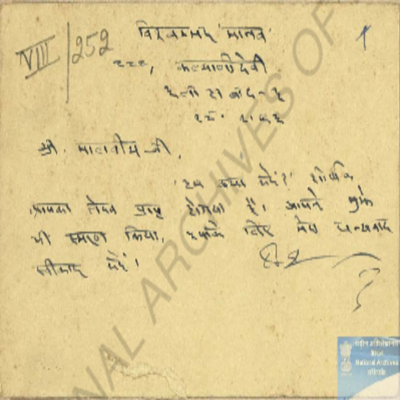 VIII/252
विश्वम्भर 'मानव'
1
कल्याणी देवी
इलाहाबाद-
श्री मालवीय जी,
'हम क्या करें?' शीर्षक
आपका लेख प्राप्त होगया है। आपने मुझे
भी स्मरण किया, इसके लिए मेरा धन्यवाद
स्वीकार करें।
NAL ARCHIVES OF
राष्ट्रीय अभिलेखागार
National Archives